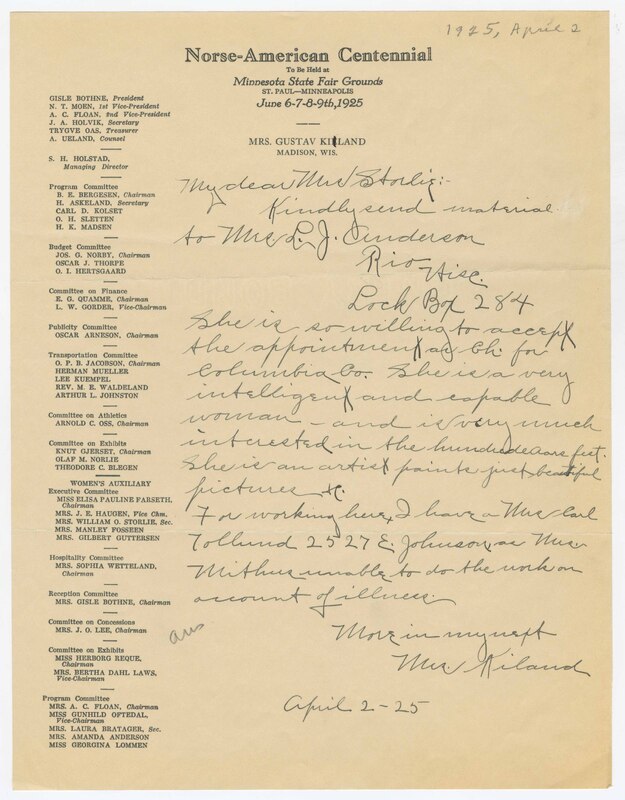 1925, April 2
Norse-American Centennial
To Be Held at
Minnesota State Fair Grounds
ST. PAUL—MINNEAPOLIS
June 6-7-8-9th, 1925
MRS. GUSTAV KILAND
MADISON, WIS.
GISLE BOTHNE, President
N. T. MOEN, 1st Vice-President
A. C. FLOAN, 2nd Vice-President
J. A. HOLVIK, Secretary
TRYGVE OAS, Treasurer
A. UELAND, Counsel
S. H. HOLSTAD,
Managing Director
Program Committee
B. E. BERGESEN, Chairman
H. ASKELAND, Secretary
CARL D. KOLSET
O. H. SLETTEN
H. K. MADSEN
Budget Committee
JOS. G. NORBY, Chairman
OSCAR J. THORPE
O. I. HERTSGAARD
Committee on Finance
E. G. QUAMME, Chairman
L. W. GORDER, Vice-Chairman
Publicity Committee
OSCAR ARNESON, Chairman
Transportation Committee
O. P. B. JACOBSON, Chairman
HERMAN MUELLER
LEE KUEMPEL
REV. M. E. WALDELAND
ARTHUR L. JOHNSTON
Committee on Athletics
ARNOLD C. OSS, Chairman
Committee on Exhibits
KNUT GJERSET, Chairman
OLAF M. NORLIE
THEODORE C. BLEGEN
WOMEN'S AUXILIARY
Executive Committee
MISS ELISA PAULINE FARSETH,
Chairman
MRS. J. E. HAUGEN, Vice Chm.
MRS. WILLIAM O. STORLIE, Sec.
MRS. MANLEY FOSSEEN
MRS. GILBERT GUTTERSEN
Hospitality Committee
MRS. SOPHIA WETTELAND,
Chairman
Reception Committee
MRS. GISLE BOTHNE, Chairman
Committee on Concessions
MRS. J. O. LEE, Chairman
Committee on Exhibits
MISS HERBORG REQUE,
Chairman
MRS. BERTHA DAHL LAWS,
Vice-Chairman
Program Committee
MRS. A. C. FLOAN, Chairman
MISS GUNHILD OFTEDAL,
Vice-Chairman
MRS. LAURA BRATAGER, Sec.
MRS. AMANDA ANDERSON
MISS GEORGINA LOMMEN
My dear Mrs Storlie:-
Kindly send material
to Mrs. L. J. Anderson
Rio, Wisc.
Lock Box 284
She is so willing to accept
the appointment as Ch. for
Columbia Co. She is a very
intelligent and capable
woman - and is very much
interested in the hundredeaars fest.
She is an artist paints just beautiful
pictures &c.
For working here, I have a Mrs Carl
Tollund 2527 E. Johnson, as Mrs.
Mithus unable to do the work on
account of illness.
More in my next
Mrs. Kiland
April 2-25
ans